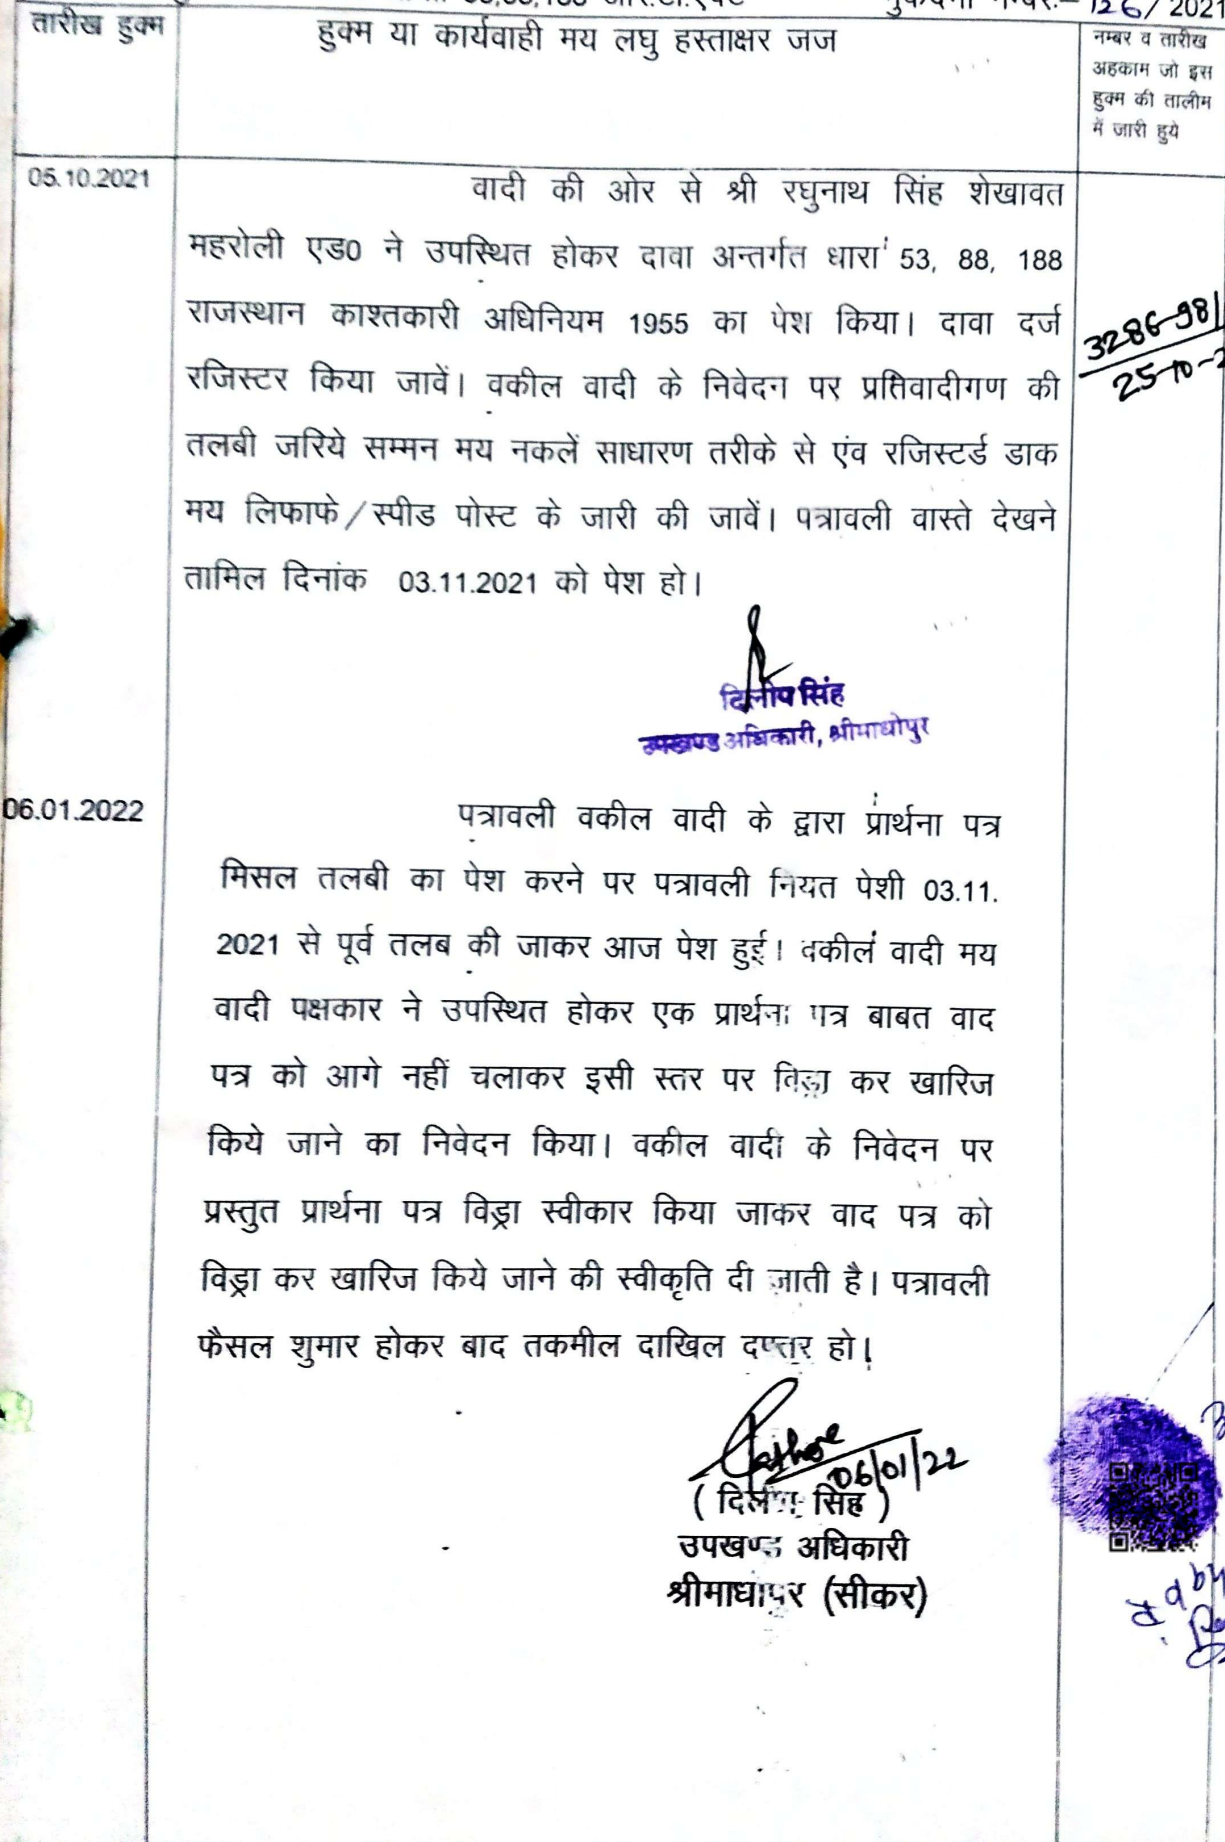 53,88,188 आर.टी.एक्ट मुकदमा नम्बर:- 126/2021
तारीख हुक्म
हुक्म या कार्यवाही मय लघु हस्ताक्षर जज
नम्बर व तारीख
अहकाम जो इस
हुक्म की तालीम
में जारी हुये
05.10.2021
वादी की ओर से श्री रघुनाथ सिंह शेखावत
महरोली एड0 ने उपस्थित होकर दावा अन्तर्गत धारा 53, 88, 188
राजस्थान काश्तकारी अधिनियम 1955 का पेश किया। दावा दर्ज
रजिस्टर किया जावें। वकील वादी के निवेदन पर प्रतिवादीगण की
तलबी जरिये सम्मन मय नकलें साधारण तरीके से एंव रजिस्टर्ड डाक
मय लिफाफे/स्पीड पोस्ट के जारी की जावें। पत्रावली वास्ते देखने
तामिल दिनांक 03.11.2021 को पेश हो।
3286-98/
25-10-2
दिलीप सिंह
उपखण्ड अधिकारी, श्रीमाधोपुर
06.01.2022
पत्रावली वकील वादी के द्वारा प्रार्थना पत्र
मिसल तलबी का पेश करने पर पत्रावली नियत पेशी 03.11.
2021 से पूर्व तलब की जाकर आज पेश हुई। वकील वादी मय
वादी पक्षकार ने उपस्थित होकर एक प्रार्थना पत्र बाबत वाद
पत्र को आगे नहीं चलाकर इसी स्तर पर विड्रा कर खारिज
किये जाने का निवेदन किया। वकील वादी के निवेदन पर
प्रस्तुत प्रार्थना पत्र विड्रा स्वीकार किया जाकर वाद पत्र को
विड्रा कर खारिज किये जाने की स्वीकृति दी जाती है। पत्रावली
फैसल शुमार होकर बाद तकमील दाखिल दफ्तर हो।
06/01/22
( दिलीप सिंह )
उपखण्ड अधिकारी
श्रीमाधोपुर (सीकर)